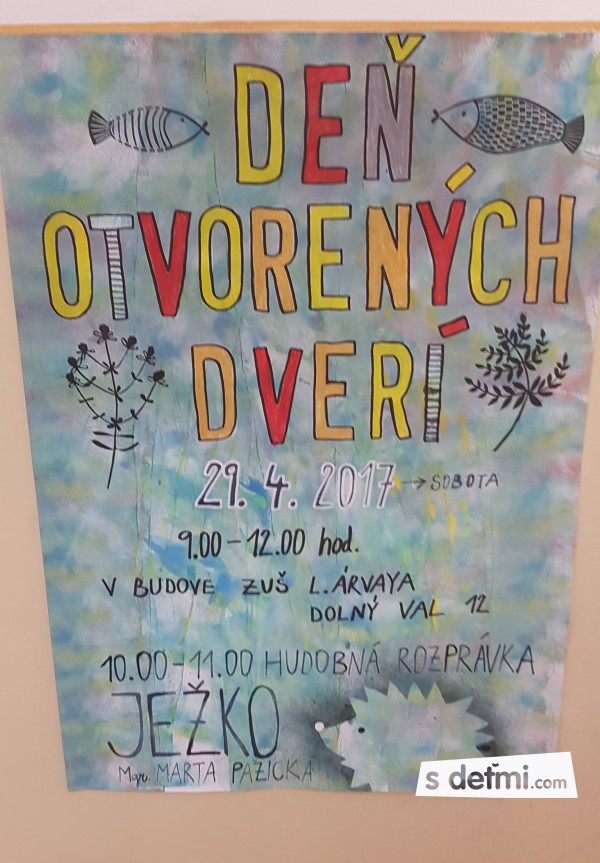 DEŇ
OTVORENÝCH
DVERÍ
29. 4. 2017 → SOBOTA
9.00 – 12.00 hod.
V BUDOVE ZUŠ L. ÁRVAYA
DOLNÝ VAL 12
10.00 – 11.00 HUDOBNÁ ROZPRÁVKA
JEŽKO
Mgr. MARTA PAZICKÁ
s deťmi.com